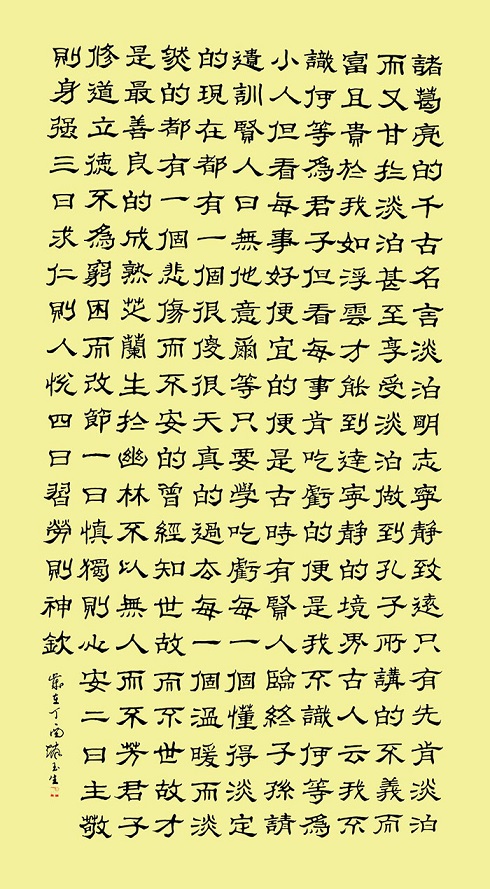 諸葛亮的千古名言淡泊明志寧靜致遠只有先肯淡泊
而又甘於淡泊甚至享受淡泊做到孔子所講的不義而
富且貴於我如浮雲才能到達寧静的境界古人云我不
識何等為君子但看每事肯吃虧的便是我不識何等為
小人但看每事好便宜的便是古時有賢人臨終子孫請
遺訓賢人曰無他意爾等只要學吃虧每一個懂得淡定
的現在都有一個很傻很天真的過去每一個溫暖而淡
然的都有一個悲傷而不安的曾經知世故而不世故才
是最善良的成熟芝蘭生於幽林不以無人而不芳君子
修道立德不為窮困而改節一曰慎獨則心安二曰主敬
則身强三曰求仁則人悅四曰習勞則神欽
歲在丁酉 玉生